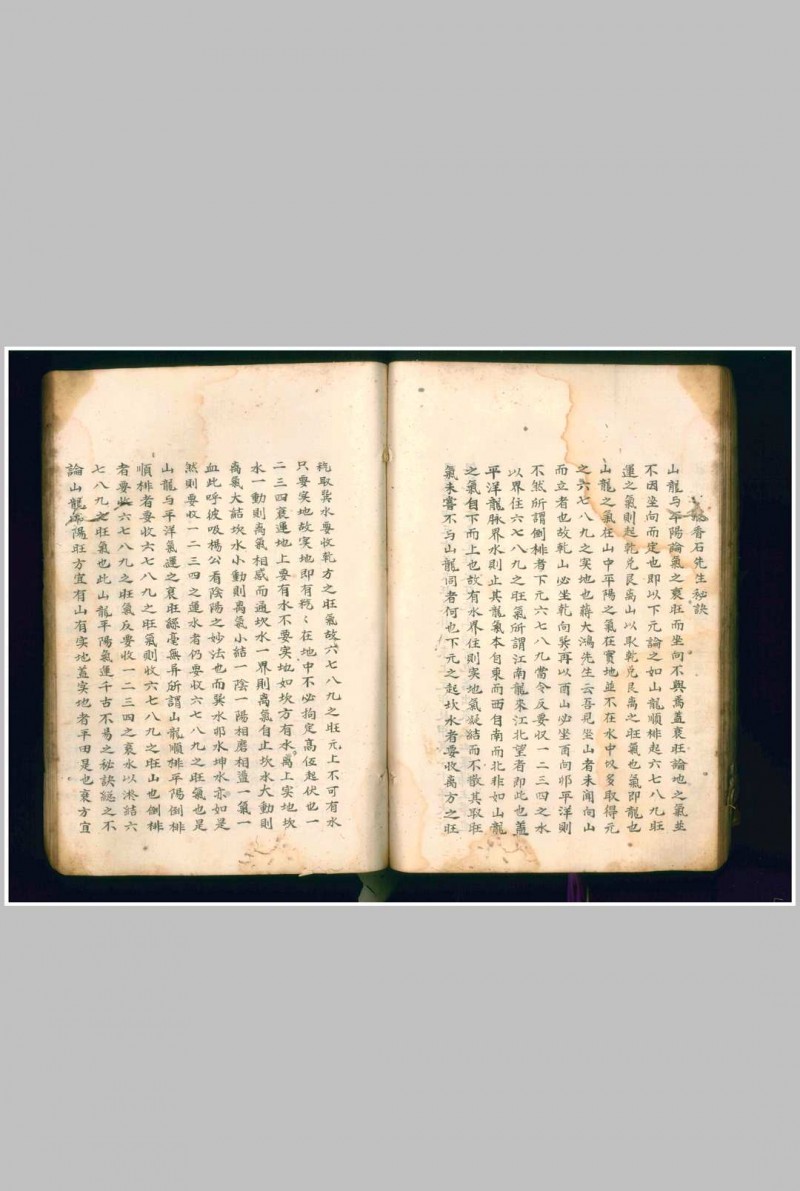 香石先生秘訣
山龍与平陽論氣之衰旺而坐向不與焉蓋衰旺論地之氣並
不因坐向而定也即以下元論之如山龍順排起六七八九旺
運之氣則起乾兌艮离山以取乾兌艮离之旺氣也氣即龍也
山龍之氣在山中平陽之氣在實地並不在水中収多取得元
之六七八九之实地也蔣大鴻先生云吾見坐山者未聞向山
而立者也故乾山必坐乾向巽再以酉山必坐酉向卯平洋則
不然所謂倒排者下元六七八九當令反要収一二三四之水
以界住六七八九之旺氣所謂江南龍來江北望者即此也蓋
平洋龍脉界水則止其龍氣本自東而西自南而北非如山龍
之氣自下而上也故有水界住則实地氣凝結而不散其取旺
氣未嘗不与山龍同者何也下元之起坎水者要收离方之旺
氣取巽水要收乾方之旺氣故六七八九之旺元上不可有水
只要实地故实地即有氣々在地中不必拘定高低起伏也一
二三四衰運地上要有水不要实地如坎方有水离上实地坎
水一動則离氣相感而通坎水一界則离氣自止坎水大動則
离氣大結坎水小動則离氣小結一陰一陽相磨相盪一氣一
血此呼彼吸楊公看陰陽之妙法也而巽水卯水坤水亦如是
然則要收一二三四之運水者仍要收六七八九之旺氣也是
山龍与平洋氣運之衰旺繇毫無异所謂山龍順排平陽倒排
順排者要收六七八九之旺氣則收六七八九之旺山也倒排
者要收六七八九之旺氣反要收一二三四之衰水以凝結六
七八九之旺氣也此山龍平陽氣運千古不易之秘訣總之不
論山龍平陽旺方宜有山有实地蓋实地者平田是也衰方宜